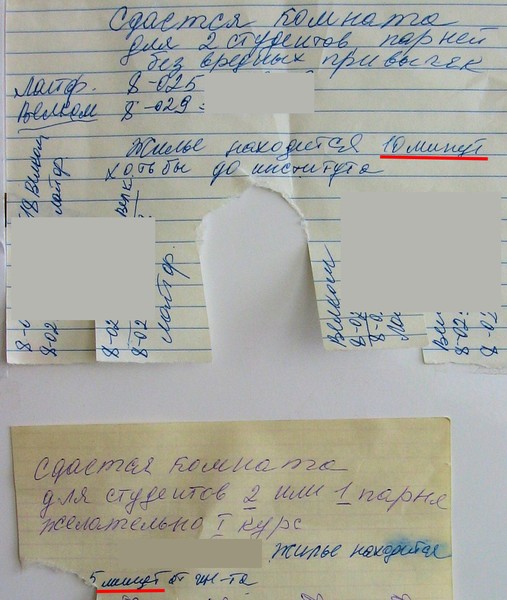 Сдается комната
для 2 студентов парней
без вредных привычек
Лайф. 8-025
Велком 8-029
Жилье находится 10 минут
хотьбы до института
Велком
Лайф.
8-02
8-02
Лайф.
8-02
8-02
Велком
8-02
8-0
8-02
8-02
Сдается комната
для студентов 2 или 1 парня
желательно I курс
Жилье находится
5 минут от ин-та